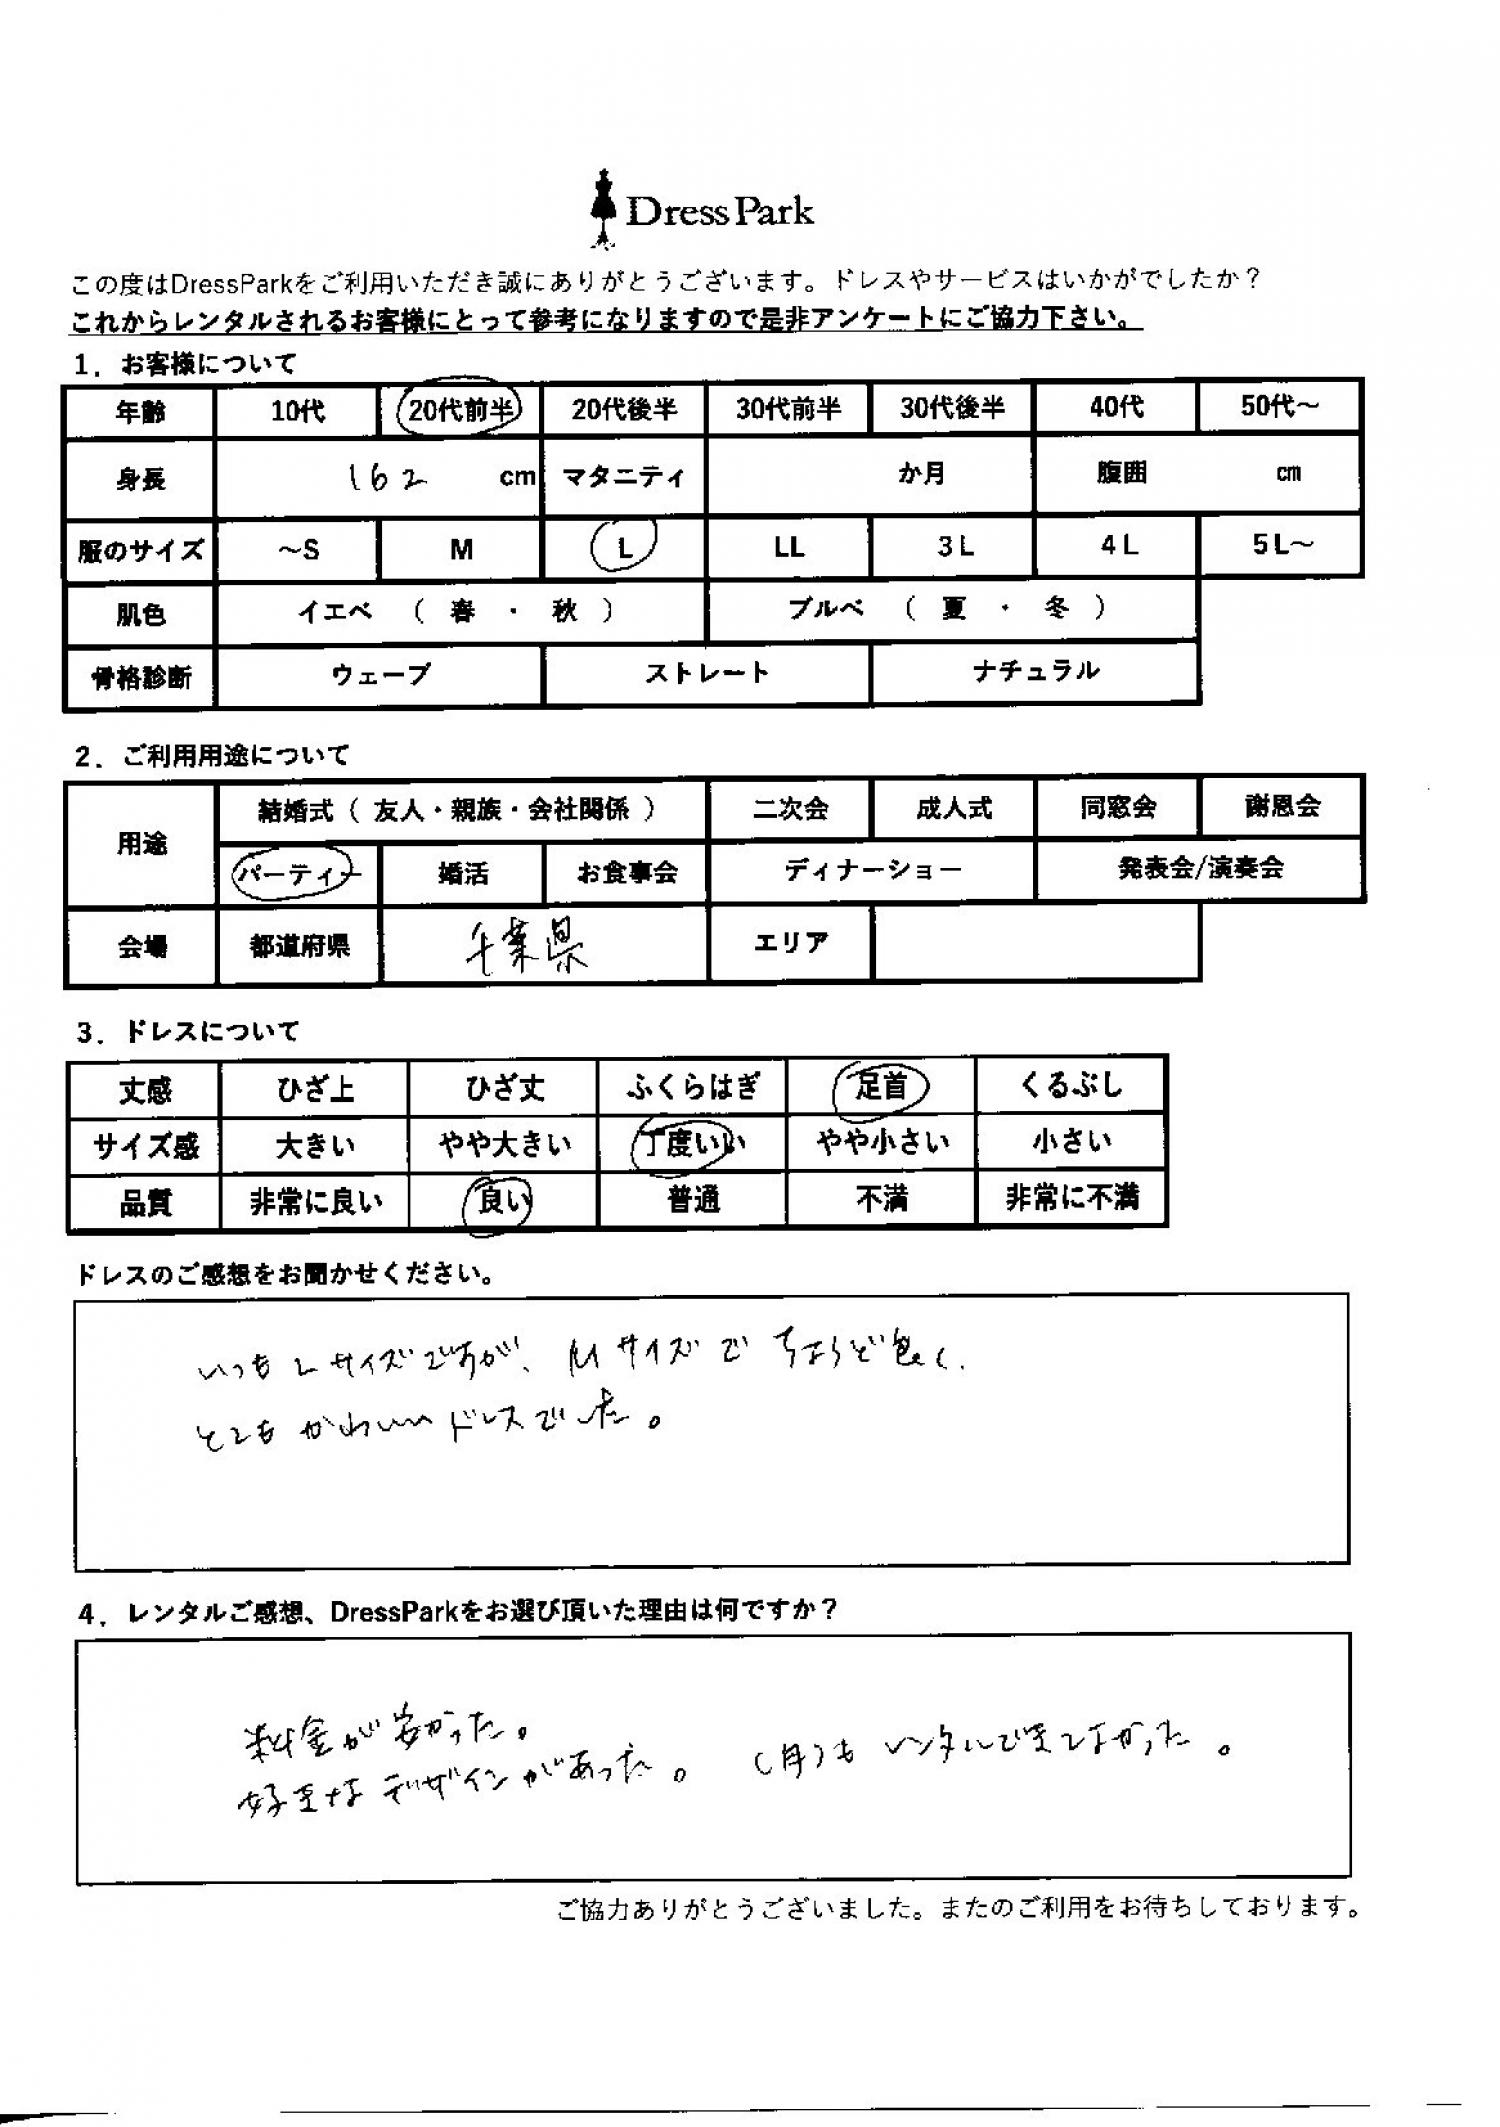 DressPark
この度はDressParkをご利用いただき誠にありがとうございます。ドレスやサービスはいかがでしたか？
これからレンタルされるお客様にとって参考になりますので是非アンケートにご協力下さい。
1．お客様について
年齢 10代 20代前半 20代後半 30代前半 30代後半 40代 50代～
身長 162 cm マタニティ か月 腹囲 cm
服のサイズ ～S M L LL 3L 4L 5L～
肌色 イエベ （ 春 ・ 秋 ） ブルベ （ 夏 ・ 冬 ）
骨格診断 ウェーブ ストレート ナチュラル
2．ご利用用途について
用途 結婚式（ 友人・親族・会社関係 ） 二次会 成人式 同窓会 謝恩会
パーティー 婚活 お食事会 ディナーショー 発表会/演奏会
会場 都道府県 千葉県 エリア
3．ドレスについて
丈感 ひざ上 ひざ丈 ふくらはぎ 足首 くるぶし
サイズ感 大きい やや大きい 丁度いい やや小さい 小さい
品質 非常に良い 良い 普通 不満 非常に不満
ドレスのご感想をお聞かせください。
いつもLサイズですが、Mサイズでちょうど良く、
とてもかわいいドレスでした。
4．レンタルご感想、DressParkをお選び頂いた理由は何ですか？
料金が安かった。
好きなデザインがあった。 (月)もレンタルできてよかった。
ご協力ありがとうございました。またのご利用をお待ちしております。